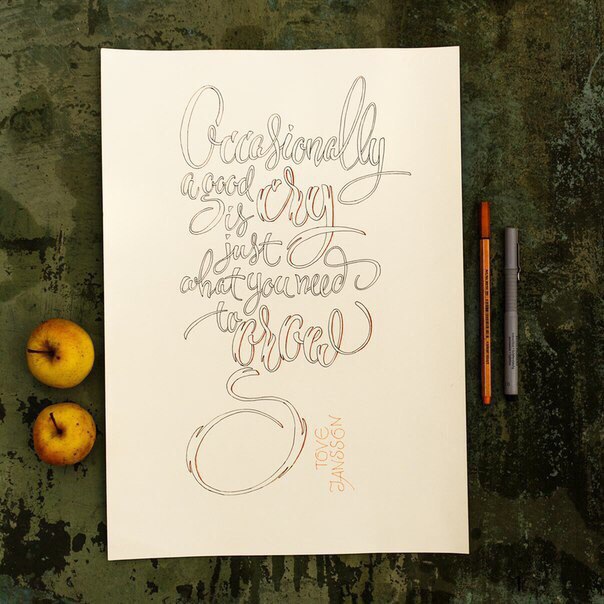 Occasionally
a good cry
is
just
what you need
to
TOVE
JANSSON